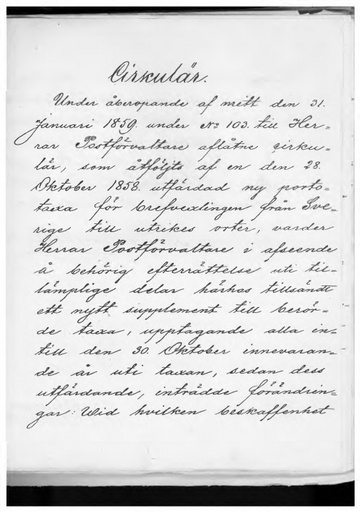 Cirkulär.
Under åberopande af mitt den 31.
Januari 1859. under No 103. till Her-
rar Postförvaltare aflåtne cirku-
lär, som åtföljts af en den 28.
Oktober 1858. utfärdad ny porto-
taxa för brefvexlingen från Sve-
rige till utrikes orter, varder
Herrar Postförvaltare i afseende
å behörig efterrättelse uti till-
lämplige delar härhos tillsändt
ett nytt supplement till berör-
de taxa, upptagande alla in-
till den 30. Oktober innevaran-
de år uti taxan, sedan dess
utfärdande, inträdde förändrin-
gar: Wid hvilken beskaffenhet